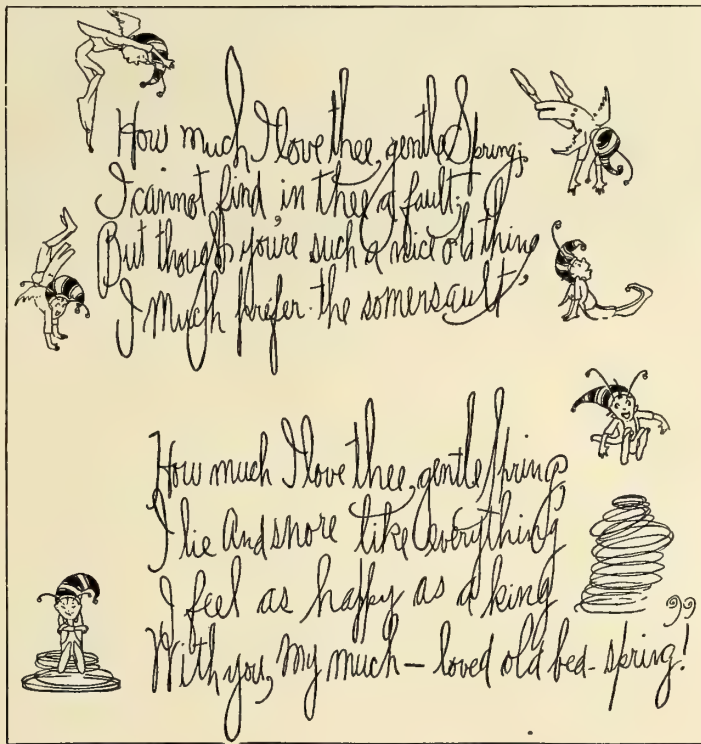 How much I love thee, gentle Spring;
I cannot find in thee a fault;
But though you're such a nice old thing
I much prefer the somersault

How much I love thee, gentle Spring
I lie and snore like everything
I feel as happy as a king
With you, my much-loved old bed-spring!"